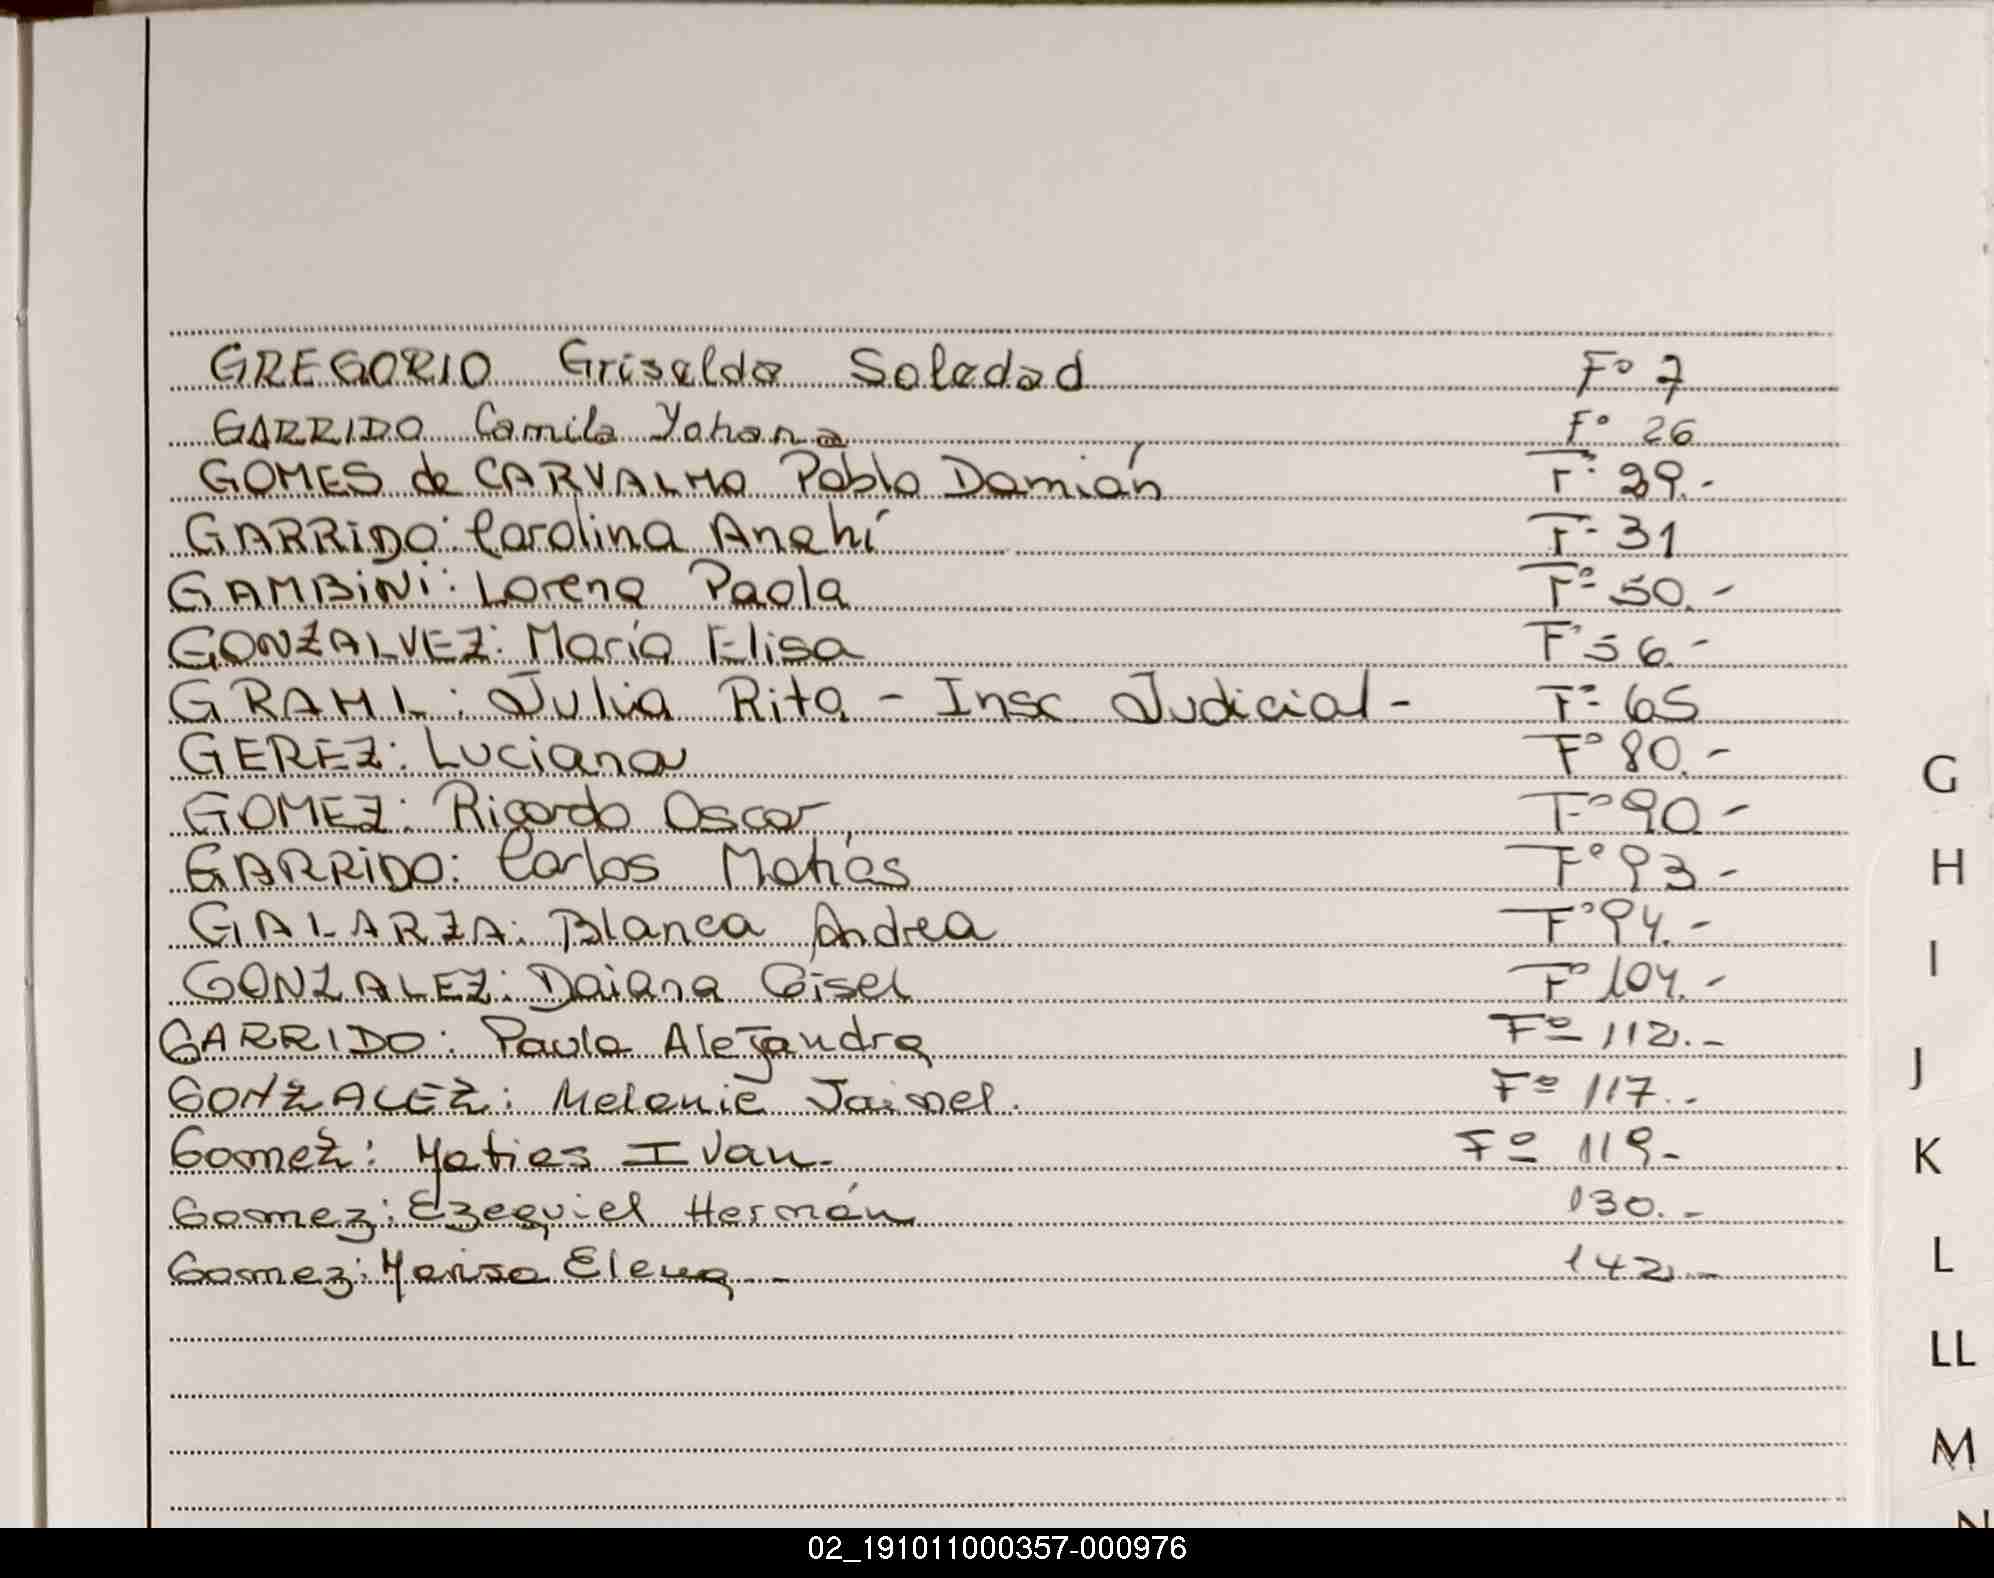 GREGORIO Griselda Soledad F° 7
GARRIDO Camila Yohana F° 26
GOMES de CARVALHO Pablo Damián F° 29.-
GARRIDO: Carolina Anahí F° 31
GAMBINI: Lorena Paola F° 50.-
GONZALVEZ: María Elisa F° 56.-
GRAHL: Julia Rita - Insc Judicial - F° 65
GEREZ: Luciana F° 80.-
GOMEZ: Ricardo Oscar F° 90-
GARRIDO: Carlos Matías F° 93-
GALARZA: Blanca Andrea F° 94.-
GONZALEZ: Daiana Gisel F° 104.-
GARRIDO: Paula Alejandra Fº 112.-
GONZALEZ: Melanie Fº 117.-
Gomez: Matias Ivan.- Fº 119-
Gomez: Ezequiel Hernán 130.-
Gomez: Marisa Elena.- 142.-
G
H
I
J
K
L
LL
M
N
02_191011000357-000976